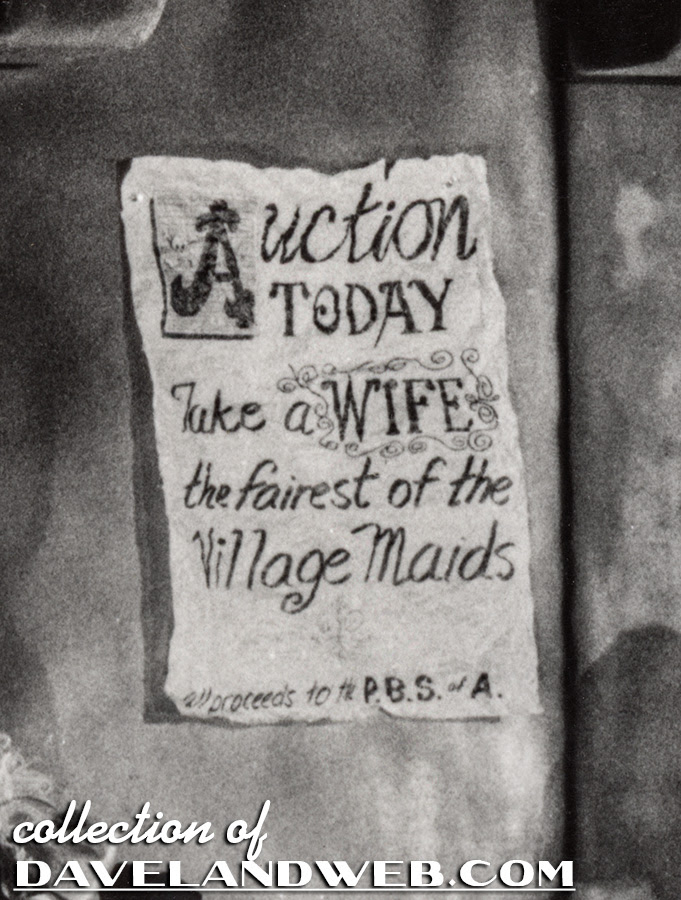 Auction
TODAY
Take a WIFE
the fairest of the
Village Maids
all proceeds to the P.B.S. of A.
collection of
DAVELANDWEB.COM